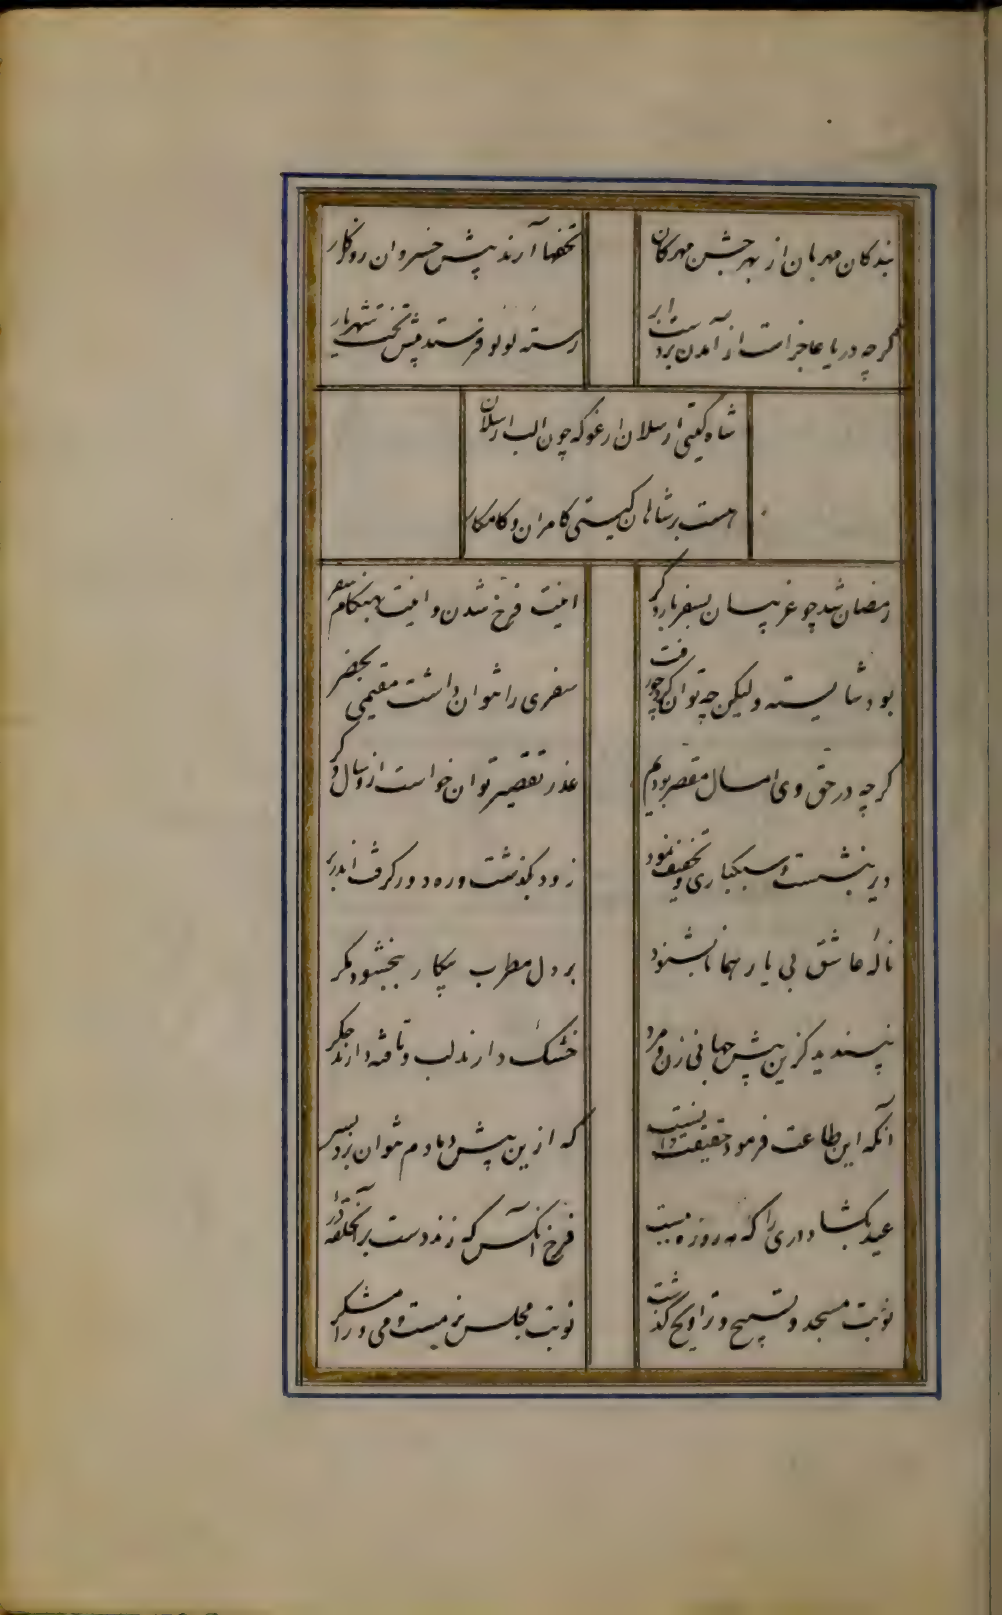 بندکان مهربان از بهر جشن مهرکان
تحفها آرند پیش خسروان روزکار
کرچه دریا عاجز است از آمدن نزد
رسته لولو فرستد پیش تخت شهریار
شاه کیتی ارسلان ارغو که چون الب ارسلان
هست بر شاهان کیتی کامران و کامکار
رمضان شد چو غریبان بسفر بار دکر
اینت فرخ شدن و اینت بهنکام سفر
بود شایسته ولیکن چه توان کرد چو رفت
سفری را نتوان داشت مقیمی بحضر
کرچه در حق وی امسال مقصر بودیم
عذر تقصیر توان خواست ازو سال دکر
دیر ننشست و سبکباری و تخفیف نمود
زود بکذشت و ره دور کرفت اندر بر
ناله عاشق بی یار همانا بشنود
بر دل مطرب بیکار ببخشود مکر
نپسندید کزین بیش جهانی زن و مرد
خشک دارند لب و تافته دارند جکر
آنکه این طاعت فرمود حقیقت دانست
که ازین بیش دمادم نتوان برد بسر
عید بکشاد دری را که مه روزه ببست
فرخ آنکس که زند دست بر آن حلقه در
نوبت مسجد و تسبیح و تراویح کذشت
نوبت مجلس بزمست و می و رامشکر